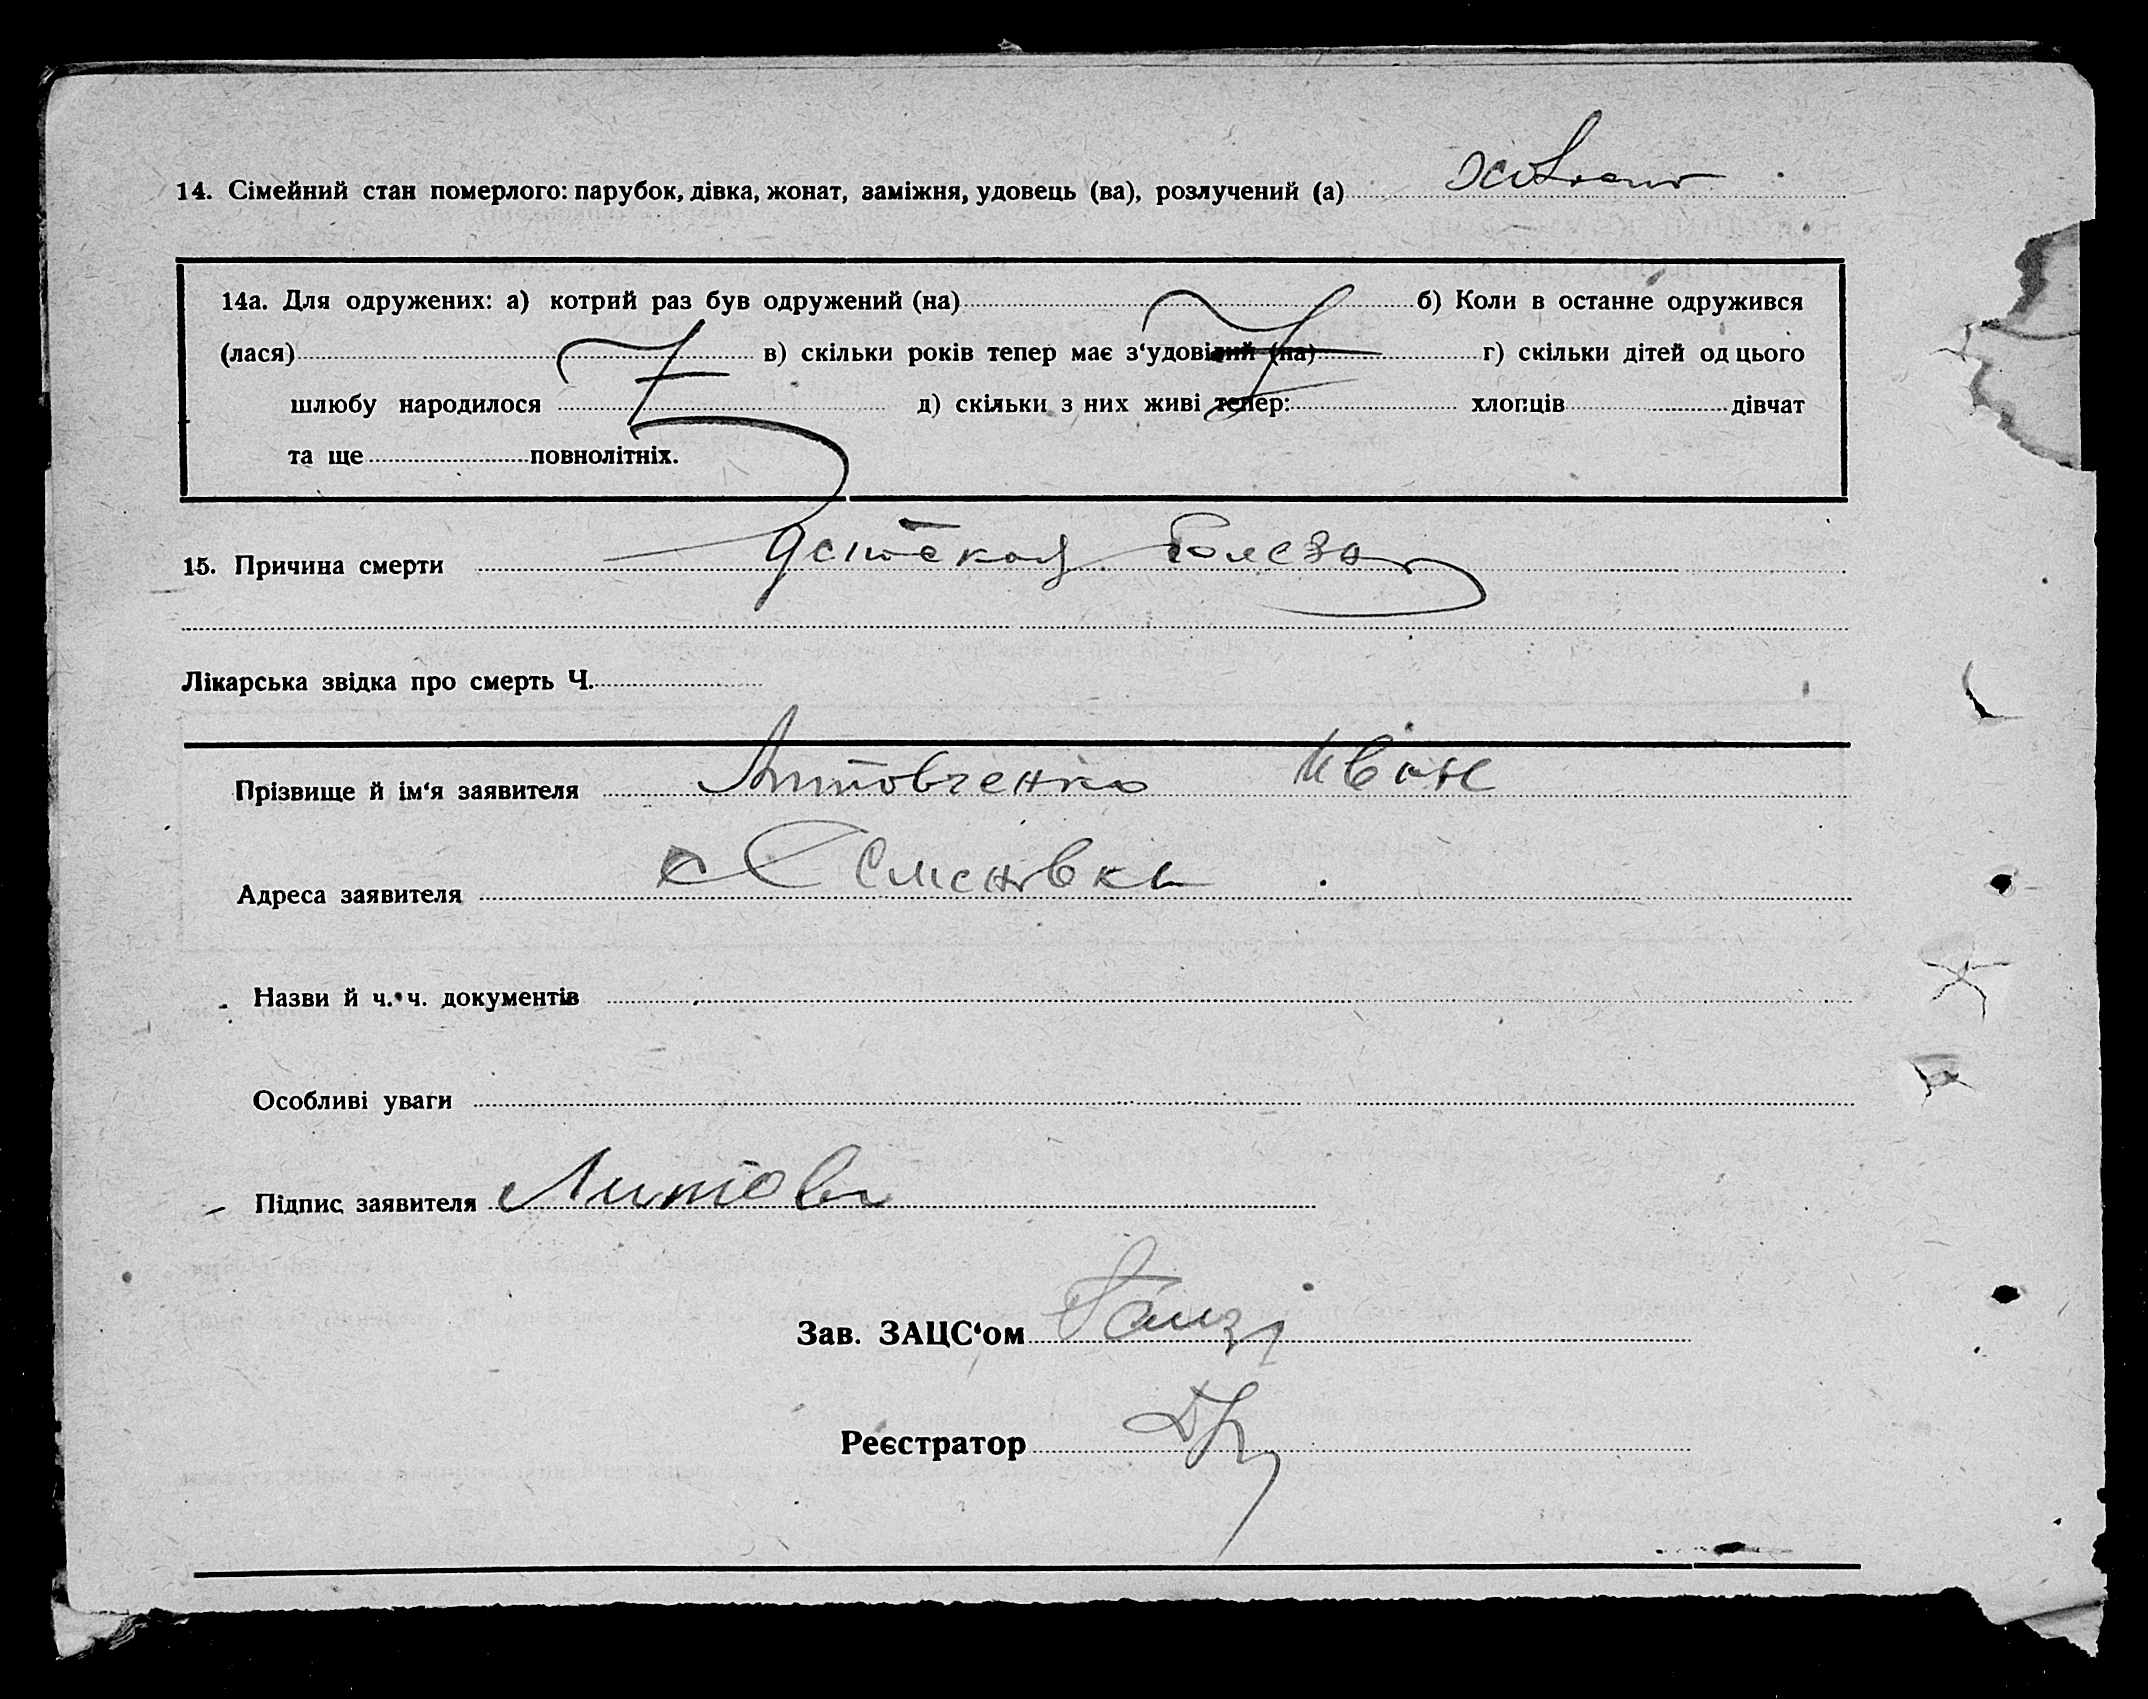 14. Сімейний стан померлого: парубок, дівка, жонат, заміжня, удовець (ва), розлучений (а)
14а. Для одружених: а) котрий раз був одружений (на) б) Коли в останнє одружився
(лася) в) скільки років тепер має з‘удовілий (на) г) скільки дітей од цього
шлюбу народилося д) скільки з них живі тепер: хлопців дівчат
та ще повнолітніх.
15. Причина смерти детская болезн
Лікарська звідка про смерть Ч.
Прізвище й ім‘я заявителя Литовченко Иван
Адреса заявителя с Семеновка
Назви й ч. ч. документів
Особливі уваги
Підпис заявителя Литовч
Зав. ЗАЦС‘ом
Реєстратор